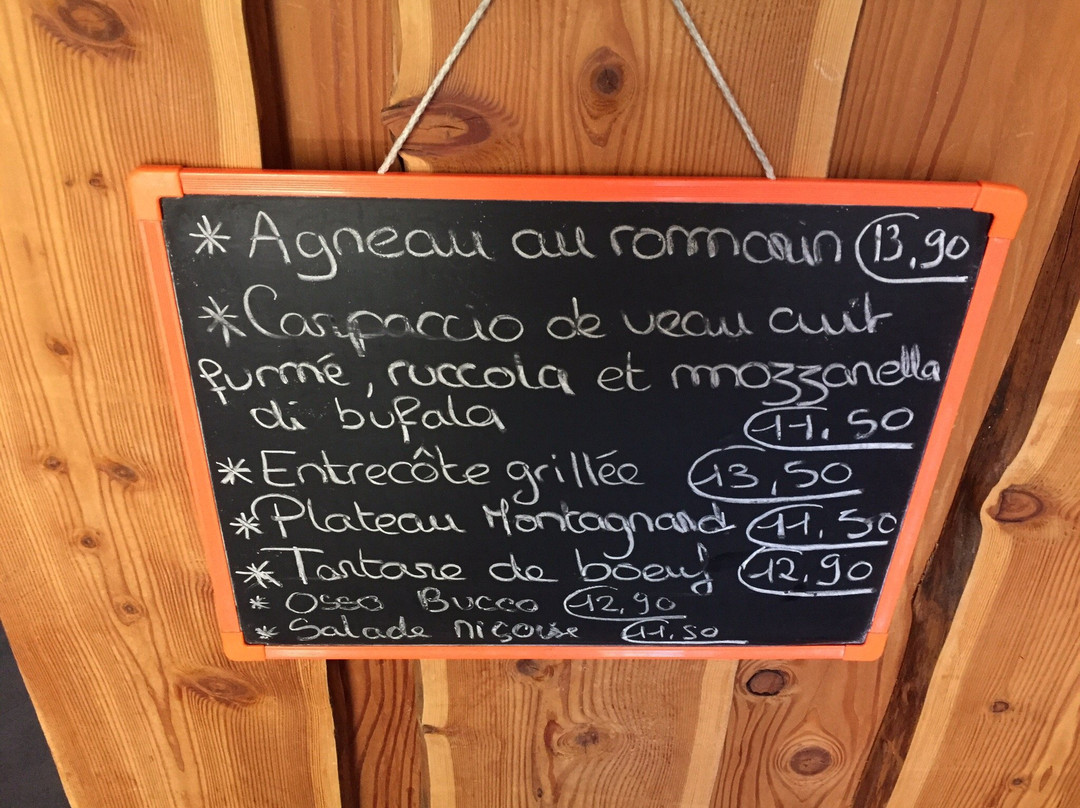 * Agneau au rommarin 13,90
* Carpaccio de veau cuit
fumé, ruccola et mozzarella
di bufala 11,50
* Entrecôte grillée 13,50
* Plateau Montagnard 11,50
* Tartare de boeuf 12,90
* Osso Bucco 12,90
* Salade niçoise 11,50